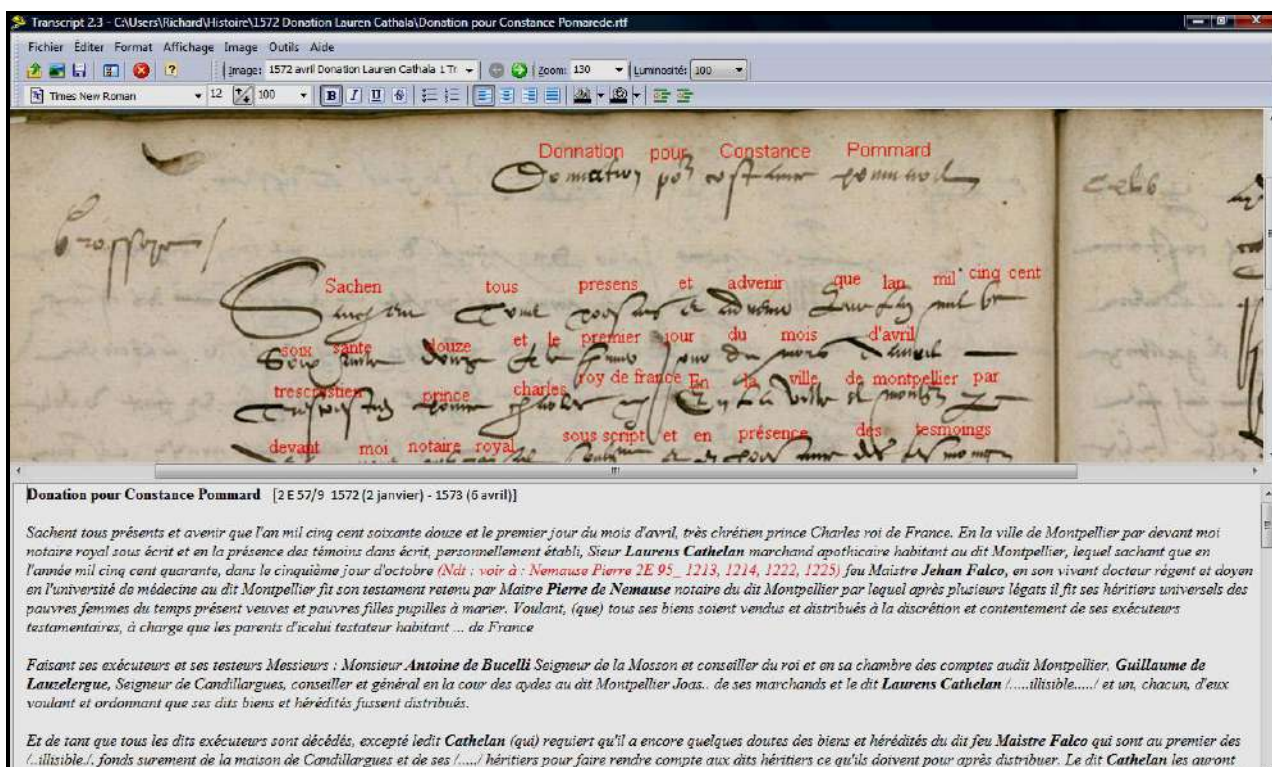 Transcript 2.3 - C:\Users\Richard\Histoire\1572 Donation Lauren Cathala\Donation pour Constance Pomarede.rtf
Fichier Éditer Format Affichage Image Outils Aide
Image: 1572 avril Donation Lauren Cathala 1 Tr Zoom: 130 Luminosité: 100
Times New Roman 12 100 B I U S
Donnation pour Constance Pommard
Sachen tous presens et advenir que lan mil cinq cent
soix sante douze et le premier jour du mois d'avril
trescrestien prince charles roy de france En la ville de montpellier par
devant moi notaire royal sous script et en présence des tesmoings
Donation pour Constance Pommard [2 E 57/9 1572 (2 janvier) - 1573 (6 avril)]
Sachent tous présents et avenir que l'an mil cinq cent soixante douze et le premier jour du mois d'avril, très chrétien prince Charles roi de France. En la ville de Montpellier par devant moi
notaire royal sous écrit et en la présence des témoins dans écrit, personnellement établi, Sieur Laurens Cathelan marchand apothicaire habitant au dit Montpellier, lequel sachant que en
l'année mil cinq cent quarante, dans le cinquième jour d'octobre (Ndt : voir à : Nemause Pierre 2E 95_ 1213, 1214, 1222, 1225) feu Maistre Jehan Falco, en son vivant docteur régent et doyen
en l'université de médecine au dit Montpellier fit son testament retenu par Maitre Pierre de Nemause notaire du dit Montpellier par lequel après plusieurs légats il fit ses héritiers universels des
pauvres femmes du temps présent veuves et pauvres filles pupilles à marier. Voulant, (que) tous ses biens soient vendus et distribués à la discrétion et contentement de ses exécuteurs
testamentaires, à charge que les parents d'icelui testateur habitant ... de France
Faisant ses exécuteurs et ses testeurs Messieurs : Monsieur Antoine de Bucelli Seigneur de la Mosson et conseiller du roi et en sa chambre des comptes audit Montpellier, Guillaume de
Lauzelergue, Seigneur de Candillargues, conseiller et général en la cour des aydes au dit Montpellier Joas.. de ses marchands et le dit Laurens Cathelan /.....illisible...../ et un, chacun, d'eux
voulant et ordonnant que ses dits biens et hérédités fussent distribués.
Et de tant que tous les dits exécuteurs sont décédés, excepté ledit Cathelan (qui) requiert qu'il a encore quelques doutes des biens et hérédités du dit feu Maistre Falco qui sont au premier des
/..illisible./. fonds surement de la maison de Candillargues et de ses /...../ héritiers pour faire rendre compte aux dits héritiers ce qu'ils doivent pour après distribuer. Le dit Cathelan les auront